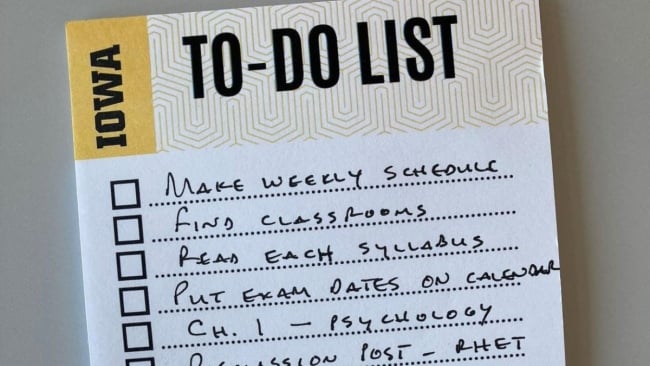 IOWA
TO-DO LIST
MAKE WEEKLY SCHEDULE
FIND CLASSROOMS
READ EACH SYLLABUS
PUT EXAM DATES ON CALENDAR
CH. 1 - PSYCHOLOGY
DISCUSSION POST - RHET